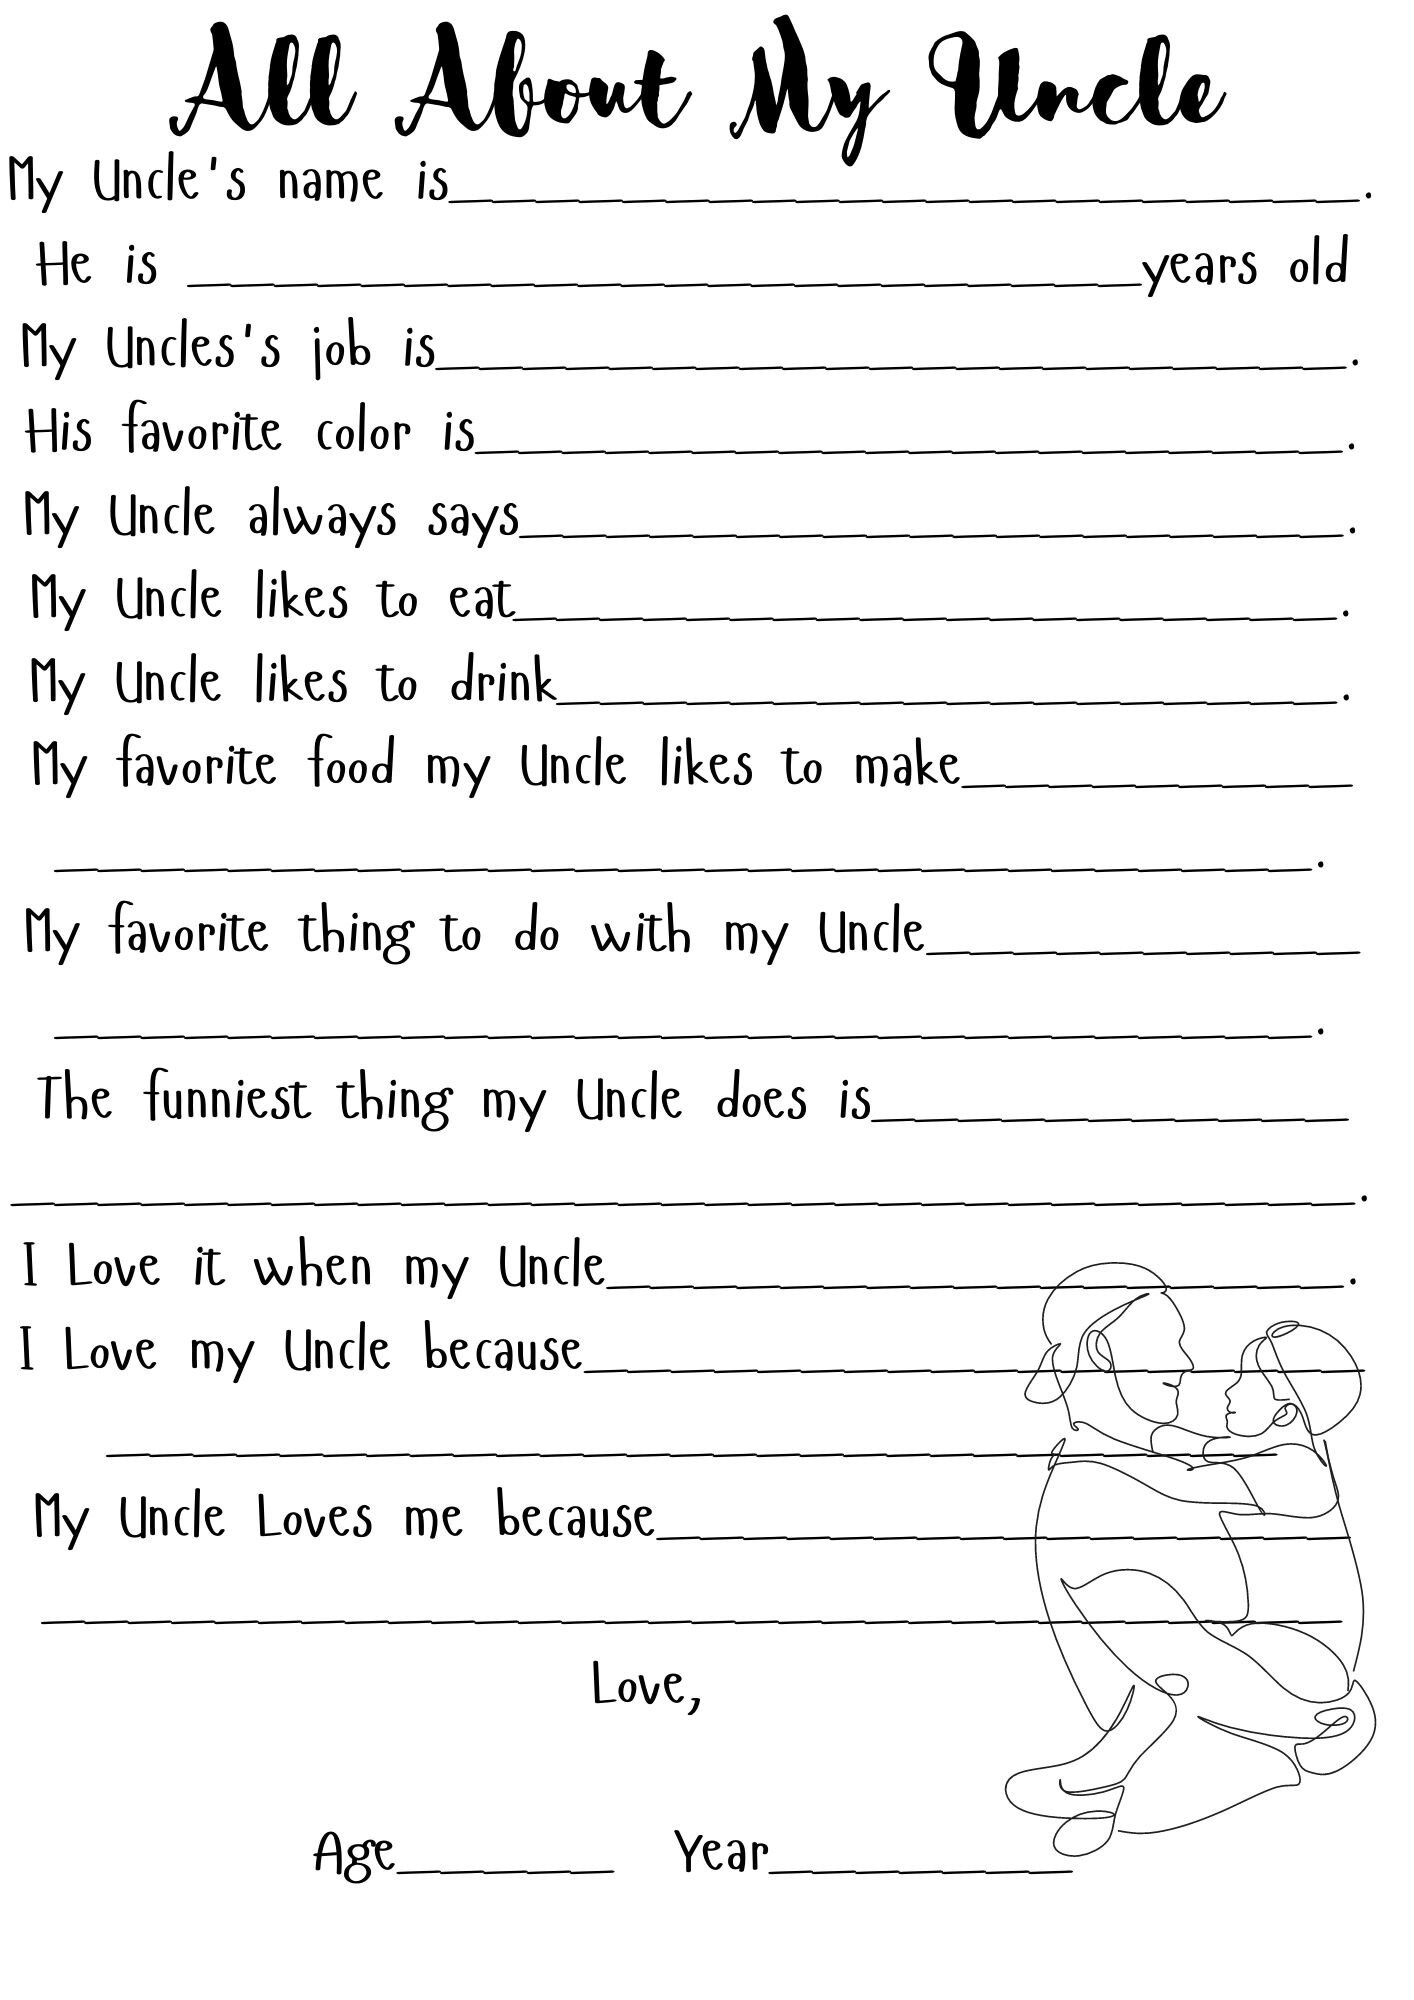 All About My Uncle
My Uncle's name is____________________.
He is ____________________years old
My Uncles's job is____________________.
His favorite color is____________________.
My Uncle always says___________________.
My Uncle likes to eat___________________.
My Uncle likes to drink__________________.
My favorite food my Uncle likes to make_________
_____________________________.
My favorite thing to do with my Uncle__________
_____________________________.
The funniest thing my Uncle does is___________
_______________________________.
I Love it when my Uncle_________________.
I Love my Uncle because__________________
___________________________
My Uncle Loves me because________________
______________________________
Love,
Age_____ Year_______